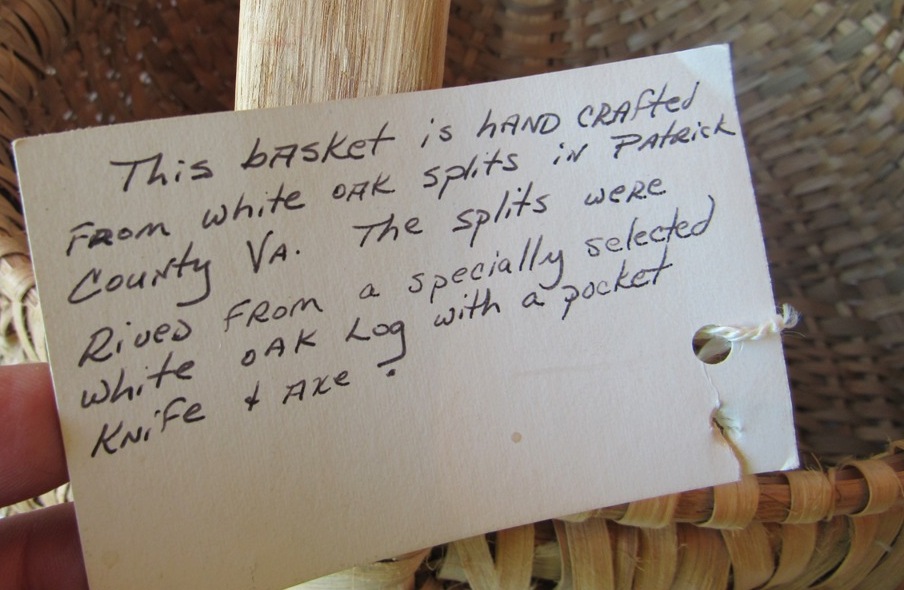 This bASket is hAND CRAfted
FROm white OAK splits iN PAtRick
CouNty VA. The splits weRe
Rived FROm a specially selected
white OAK Log with a pocket
KNiFe & AXe.